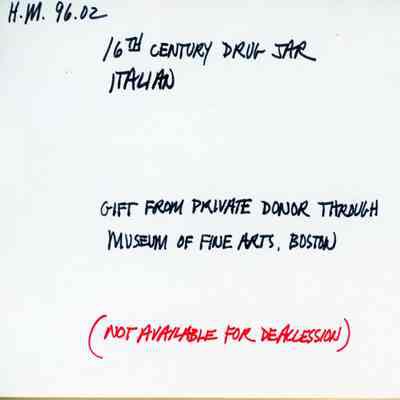 H.M. 96.02
16TH CENTURY DRUG JAR
ITALIAN
GIFT FROM PRIVATE DONOR THROUGH
MUSEUM OF FINE ARTS, BOSTON
(NOT AVAILABLE FOR DEACCESSION)